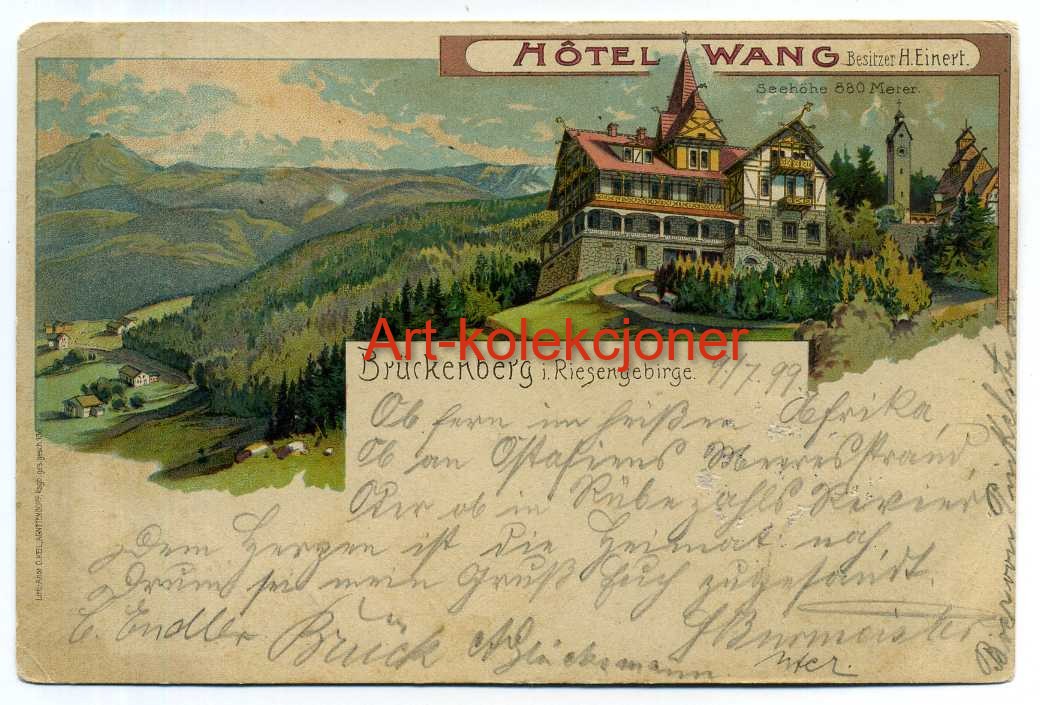 HÔTEL WANG Besitzer H. Einert.
Seehöhe 880 Meter.
Art-kolekcjoner
Brückenberg i. Riesengebirge.
9/7. 99.
Ob fern im heißen Afrika,
Ob an Ostasiens Meeresstrand,
Oder ob in Rübezahls Revier
Dem Herzen ist die Heimat nah,
Drum sei mein Gruß Euch zugesandt.
E. Endler Brück Glücksmann HBurmeister